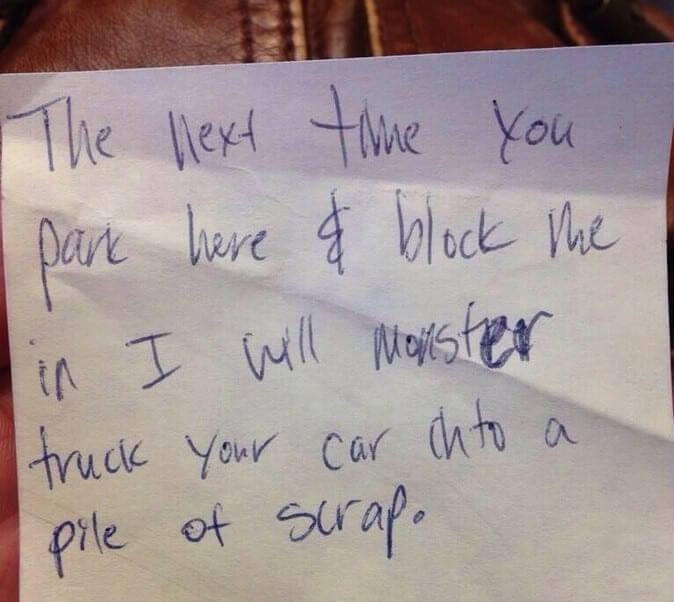 The next time you
park here & block me
in I will monster
truck your car into a
pile of scrap.